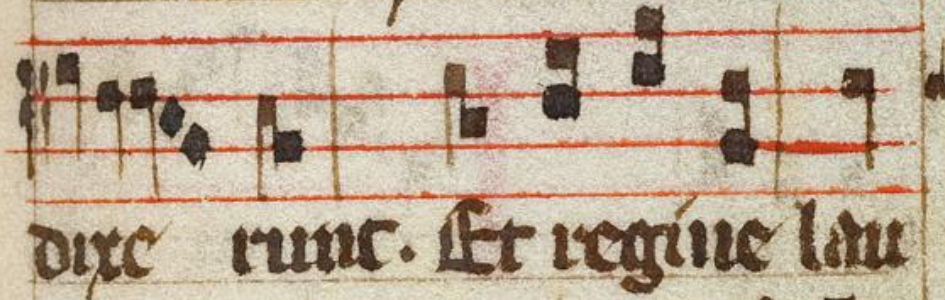 dixe runt. Et regine lau